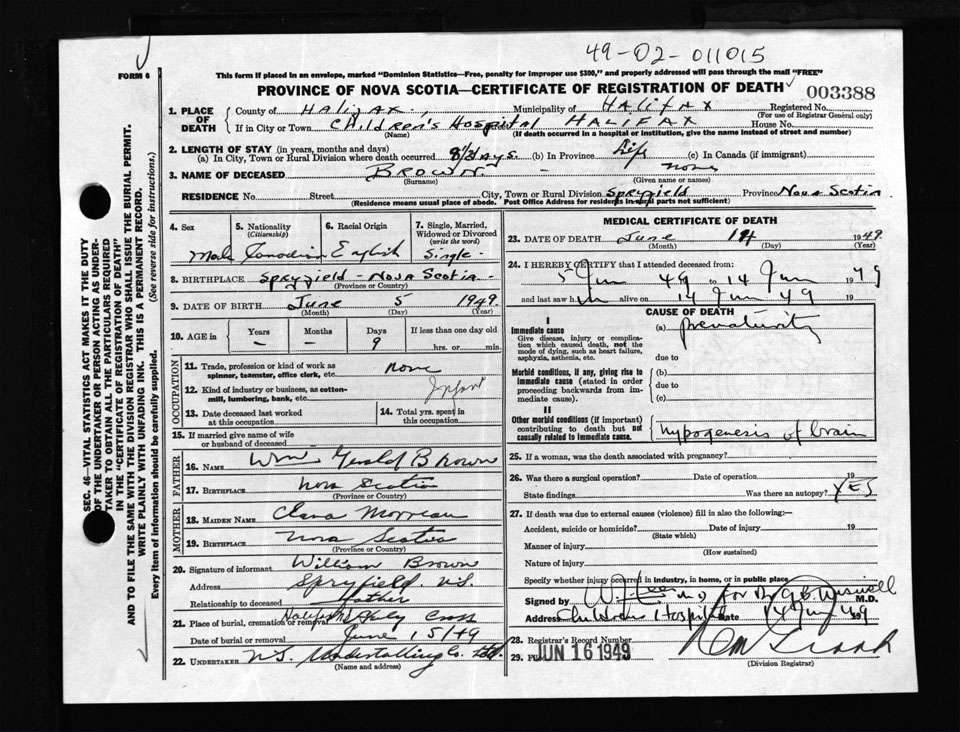 49-02-011015
FORM 6
This form if placed in an envelope, marked "Dominion Statistics—Free, penalty for improper use $300," and properly addressed will pass through the mail "FREE"
PROVINCE OF NOVA SCOTIA—CERTIFICATE OF REGISTRATION OF DEATH
003388
1. PLACE OF DEATH
County of HALIFAX Municipality of HALIFAX Registered No.
(For use of Registrar General only)
If in City or Town Children's Hospital HALIFAX House No.
(Name) (If death occurred in a hospital or institution, give the name instead of street and number)
2. LENGTH OF STAY (in years, months and days)
(a) In City, Town or Rural Division where death occurred days (b) In Province Life (c) In Canada (if immigrant)
3. NAME OF DECEASED BROWN - none
(Surname) (Given name or names)
RESIDENCE No. Street City, Town or Rural Division Spryfield Province Nova Scotia
(Residence means usual place of abode. Post Office Address for residents in rural parts not sufficient)
4. Sex
Male
5. Nationality
(Citizenship)
Canadian
6. Racial Origin
English
7. Single, Married, Widowed or Divorced
(write the word)
Single
8. BIRTHPLACE Spryfield - Nova Scotia
(Province or Country)
9. DATE OF BIRTH June 5 1949
(Month) (Day) (Year)
10. AGE in Years Months Days If less than one day old
- - 9 hrs. or min.
OCCUPATION
11. Trade, profession or kind of work as none
spinner, teamster, office clerk, etc.
12. Kind of industry or business, as cotton-mill, lumbering, bank, etc. Infant
13. Date deceased last worked at this occupation
14. Total yrs. spent in this occupation
15. If married give name of wife or husband of deceased
FATHER
16. NAME Wm Gerald Brown
17. BIRTHPLACE Nova Scotia
(Province or Country)
MOTHER
18. MAIDEN NAME Clara
19. BIRTHPLACE Nova Scotia
(Province or Country)
20. Signature of informant William Brown
Address Spryfield N.S.
Relationship to deceased Father
21. Place of burial, cremation or removal Holy Cross
Date of burial or removal June 15/49
22. UNDERTAKER N.S. Undertaking Co. Ltd.
(Name and address)
MEDICAL CERTIFICATE OF DEATH
23. DATE OF DEATH June 14 1949
(Month) (Day) (Year)
24. I HEREBY CERTIFY that I attended deceased from:
5 Jun 49 to 14 Jun 1949
and last saw him alive on 14 Jun 49 19
CAUSE OF DEATH
I
Immediate cause (a) prematurity
Give disease, injury or complication which caused death, not the mode of dying, such as heart failure, asphyxia, asthenia, etc.
due to
Morbid conditions, if any, giving rise to immediate cause (stated in order proceeding backwards from immediate cause).
(b)
due to
(c)
II
Other morbid conditions (if important) contributing to death but not causally related to immediate cause.
hypogenesis of brain
25. If a woman, was the death associated with pregnancy?
26. Was there a surgical operation? Date of operation 19
State findings Was there an autopsy? YES
27. If death was due to external causes (violence) fill in also the following:—
Accident, suicide or homicide? Date of injury 19
(State which)
Manner of injury
(How sustained)
Nature of injury
Specify whether injury occurred in industry, in home, or in public place
Signed by for Dr G.B. Wiswell M.D.
Address Children's Hospital Date 14 Jun 49
28. Registrar's Record Number
29. JUN 16 1949
(Division Registrar)
SEC. 46—VITAL STATISTICS ACT MAKES IT THE DUTY
OF THE UNDERTAKER OR PERSON ACTING AS UNDER-
TAKER TO OBTAIN ALL THE PARTICULARS REQUIRED
IN THE "CERTIFICATE OF REGISTRATION OF DEATH"
AND TO FILE THE SAME WITH THE DIVISION REGISTRAR WHO SHALL ISSUE THE BURIAL PERMIT.
WRITE PLAINLY WITH UNFADING INK. THIS IS A PERMANENT RECORD.
Every item of information should be carefully supplied. (See reverse side for instructions.)